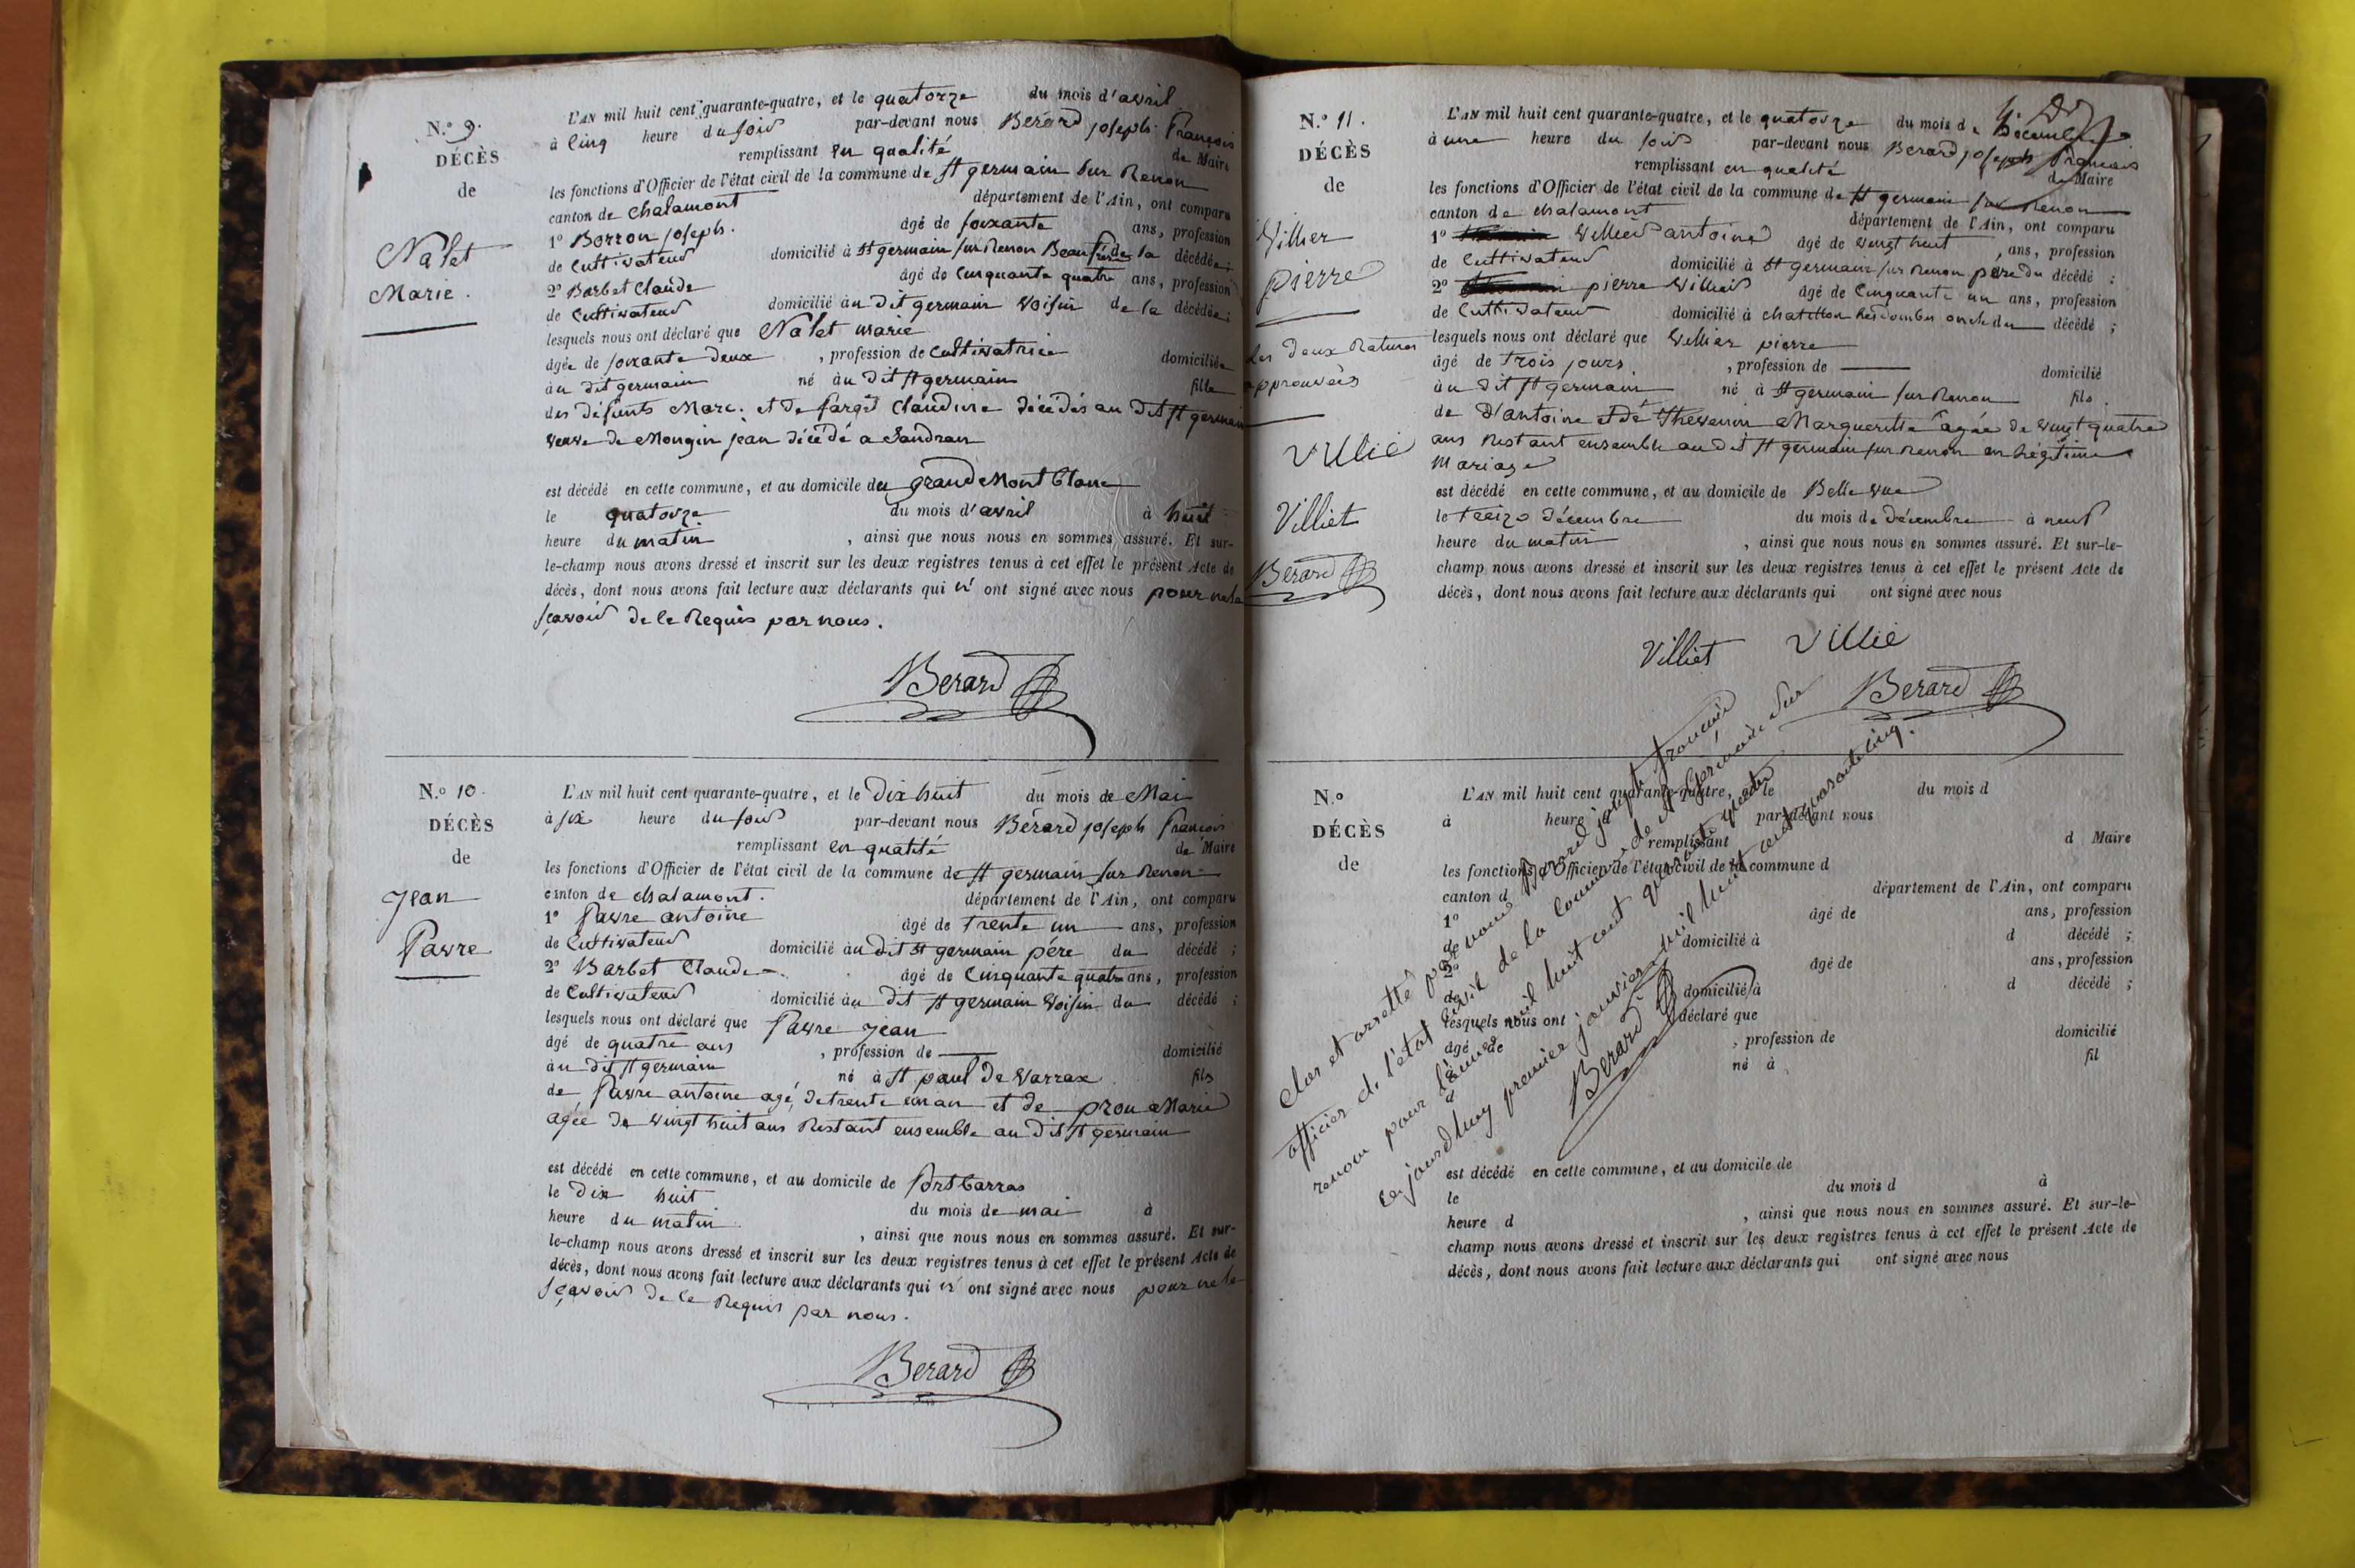 N.º 9.
DÉCÈS
de
Nalet
Marie.
L'AN mil huit cent quarante-quatre, et le quatorze du mois d'avril
à cinq heure du soir par-devant nous Berard joseph françois
remplissant en qualité de Maire
les fonctions d'Officier de l'état civil de la commune de st germain sur Renon
canton de chalamont département de l'Ain, ont comparu
1º Borron joseph. âgé de soixante ans, profession
de Cultivateur domicilié à st germain sur Renon Beaufrère de la décédée;
2º Barbet Claude âgé de Cinquante quatre ans, profession
de Cultivateur domicilié au dit germain Voisin de la décédée;
lesquels nous ont déclaré que Nalet marie
âgée de soixante deux , profession de Cultivatrice domiciliée
au dit germain né au dit st germain fille
des défunts Marc. et de farget Claudine décédés au dit st germain
veuve de Mongin jean décédé a Sandran
est décédé en cette commune, et au domicile du grand Mont blanc
le quatorze du mois d'avril à huit
heure du matin , ainsi que nous nous en sommes assuré. Et sur-
le-champ nous avons dressé et inscrit sur les deux registres tenus à cet effet le présent Acte de
décès, dont nous avons fait lecture aux déclarants qui n' ont signé avec nous pour ne le
sçavoir de ce Requis par nous.
Berard
N.º 10.
DÉCÈS
de
Jean
Favre
L'AN mil huit cent quarante-quatre, et le Dix huit du mois de Mai
à six heure du soir par-devant nous Bérard joseph françois
remplissant en qualité de Maire
les fonctions d'Officier de l'état civil de la commune de st germain sur Renon
canton de chalamont. département de l'Ain, ont comparu
1º favre antoine âgé de trente un ans, profession
de Cultivateur domicilié au dit st germain père du décédé ;
2º Barbet Claude âgé de Cinquante quatre ans, profession
de Cultivateur domicilié au dit st germain Voisin du décédé ;
lesquels nous ont déclaré que favre jean
âgé de quatre ans , profession de domicilié
au dit st germain né à st paul de Varrax fils
de favre antoine agé de trente un an et de prou Marie
agée de vingt huit ans Restant ensemble au dit st germain
est décédé en cette commune, et au domicile de
le dix huit du mois de mai à
heure du matin , ainsi que nous nous en sommes assuré. Et sur-
le-champ nous avons dressé et inscrit sur les deux registres tenus à cet effet le présent Acte de
décès, dont nous avons fait lecture aux déclarants qui n' ont signé avec nous pour ne le
sçavoir de ce Requis par nous.
Berard
N.º 11.
DÉCÈS
de
Villier
pierre
Les deux Ratures
approuvées
Villié
Villiet
Berard
L'AN mil huit cent quarante-quatre, et le quatorze du mois de Décembre
à une heure du soir par-devant nous Berard joseph françois
remplissant en qualité de Maire
les fonctions d'Officier de l'état civil de la commune de st germain sur Renon
canton de chalamont département de l'Ain, ont comparu
1º Villier antoine âgé de vingt huit , ans, profession
de Cultivateur domicilié à st germain sur Renon père du décédé ;
2º pierre Villier âgé de Cinquante un ans, profession
de Cultivateur domicilié à chatillon les dombes oncle du décédé ;
lesquels nous ont déclaré que Villier pierre
âgé de trois jours , profession de domicilié
au dit st germain né à st germain sur Renon fils
de d'antoine et de thevenin Margueritte âgée de vingt quatre
ans Restant ensemble au dit st germain sur Renon en Légitime
Mariage
est décédé en cette commune, et au domicile de Belle vue
le treize décembre du mois de décembre à neuf
heure du matin , ainsi que nous nous en sommes assuré. Et sur-le-
champ nous avons dressé et inscrit sur les deux registres tenus à cet effet le présent Acte de
décès, dont nous avons fait lecture aux déclarants qui ont signé avec nous
Villiet Villié
Berard
N.º
DÉCÈS
de
L'AN mil huit cent quarante-quatre, le du mois d
à heure par-devant nous
remplissant d Maire
les fonctions d'Officier de l'état civil de la commune d
canton d département de l'Ain, ont comparu
1º âgé de ans, profession
de domicilié à d décédé ;
2º âgé de ans, profession
de domicilié à d décédé ;
lesquels nous ont déclaré que
âgé de , profession de domicilié
à né à fil
d
est décédé en cette commune, et au domicile de
le du mois d à
heure d , ainsi que nous nous en sommes assuré. Et sur-le-
champ nous avons dressé et inscrit sur les deux registres tenus à cet effet le présent Acte de
décès, dont nous avons fait lecture aux déclarants qui ont signé avec nous
Clos et arretté par nous Berard joseph francois
officier de l'état civil de la commune de st Germain sur
renon pour l'année mil huit cent quarante quatre
ce jourdhuy premier janvier mil huit cent quarante cinq.
Berard